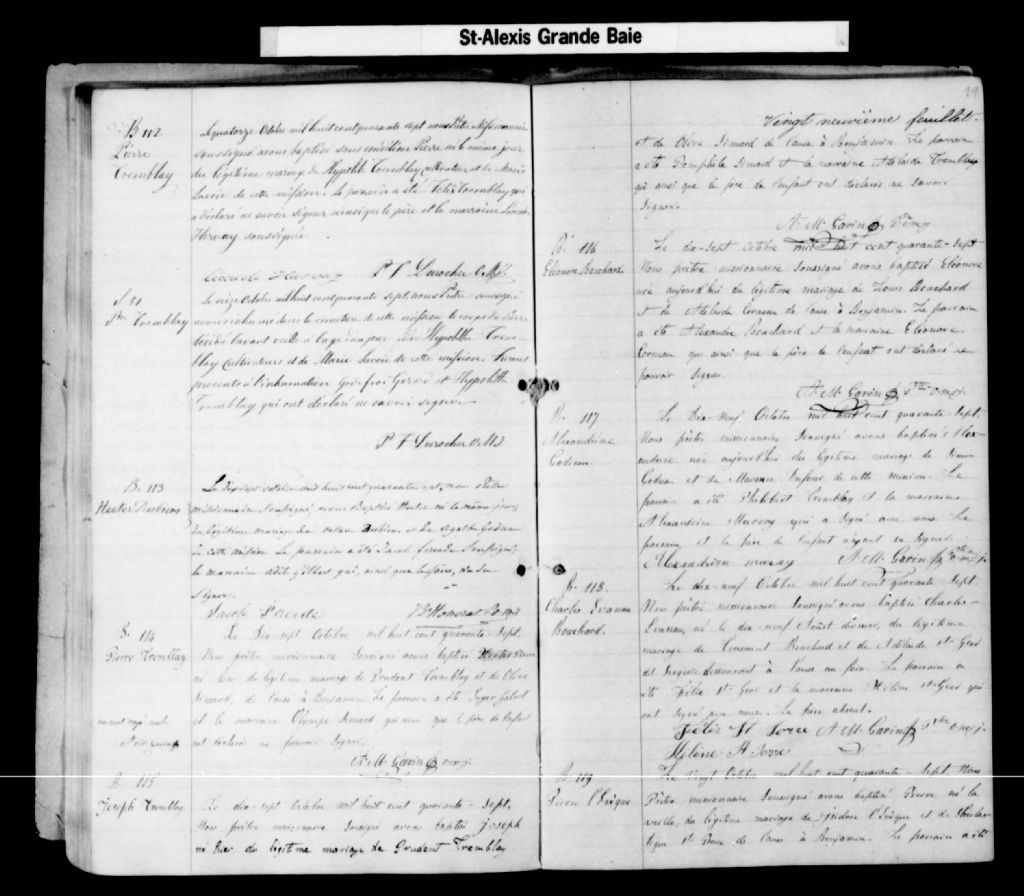 St-Alexis Grande Baie
B 112
Pierre
Tremblay
Lequatorze Octobre mil huit cent quarante sept nous Prêtre Missionnaire
soussigné avons baptisé sous condition Pierre né le même jour
du légitime mariage de Hypolite Tremblay cultivateur et de Marie
Savoie de cette mission. Le parrain a été Tremblay qui
a déclaré ne savoir signer ainsi que le père et la marraine
Hervay soussignée
Hervay P F Durocher O.M.I.
S 21
Pre Tremblay
Le seize Octobre mil huit cent quarante sept, nous Prêtre soussigné
avons inhumé dans le cimetière de cette mission le corps de Pierre
décédé l'avant veille à l'age d'un jour fils Hypolitte Trem-
blay cultivateurs et de Marie Savoie de cette mission. Furent
presents à l'inhumation Godefroi et Hypolitte
Tremblay qui ont déclaré ne savoir signer
P F Durocher O.M.I.
B. 113
Hector Desbiens
Le dix sept octobre mil huit cent quarante sept, nous Prêtre
missionnaire soussigné, avons baptisé Hector né le même jour,
du légitime mariage de Desbiens et de Agathe Godreau
de cette mission Le parrain a été Jacob soussigné;
la marraine Gilbert qui, ainsi que le père, n'a su
signer.
Jacob Honorat
B. 114
Pierre Tremblay
Le Dix-sept Octobre mil huit cent quarante-sept.
Nous prêtre missionnaire soussigné avons baptisé Pierre
né hier du légitime mariage de Prudent Tremblay et de Olive
Simard, de l'anse à Benjamin. Le parrain a été Roger
et la marraine Olympe Simard qui ainsi que le père de l'enfant
ont déclaré ne pouvoir signer.
un mot rayé nul.
A. M. Garin
A. M. Garin o.m.j.
B. 115
Joseph Tremblay
Le dix-sept octobre mil huit cent quarante-sept.
Nous prêtre missionnaire soussigné avons baptisé Joseph
né hier du légitime mariage de Prudent Tremblay
29
Vingt neuvième feuillet
et de Olive Simard de l'anse à Benjamin. Le parrain
a été Simard et la marraine Adélaide Tremblay
qui ainsi que le père de l'enfant ont déclarés ne savoir
signer.
A. M. Garin Ptre o.m.j.
B. 116
Eléonore Bouchard
Le dix-sept Octobre mil huit cent quarante-sept
Nous prêtre missionnaire soussigné avons baptisé Eléonore
née aujourd'hui du légitime mariage de Louis Bouchard
et de Adélaide de l'anse à Benjamin. Le parrain
a été Alexandre Bouchard et la marraine Eléonore
qui ainsi que le père de l'enfant ont déclaré ne
pouvoir signer.
A. M. Garin Ptre o.m.j.
B. 117
Alexandrine
Le Dix-neuf Octobre mil huit cent quarante-sept.
Nous prêtre missionnaire soussigné avons baptisé Alex-
andrine née aujourd'hui du légitime mariage de
et de Dufour de cette mission. Le
parrain a été Philibert Tremblay et la marraine
Alexandrine Murray qui a signé avec nous. Le
parrain et le père de l'enfant n'ayant su signer.
Alexandrion muray A. M. Garin Ptre o.m.j.
B. 118.
Charles Evariste
Bouchard.
Le dix-neuf Octobre mil huit cent quarante-sept.
Nous prêtre missionnaire soussigné avons baptisé Charles-
né le dix-neuf Août dernier, du légitime
mariage de Bouchard et de Adélaide St-Gear
dit demeurant à l'anse au foin. Le parrain a
été Félix St-Gear et la marraine Hélène St-Gear qui
ont signé avec nous. Le père absent.
Félix St Jorre A. M. Garin Ptre o.m.j.
Hélène St Jorre
B. 119
Pierre l'Evêque
Le vingt Octobre mil huit cent quarante-sept, Nous
Prêtre missionnaire soussigné avons baptisé Pierre né la
veille, du légitime mariage de Isidore l'Evêque et de Scholas-
tique St-Pierre de l'anse à Benjamin. Le parrain a été